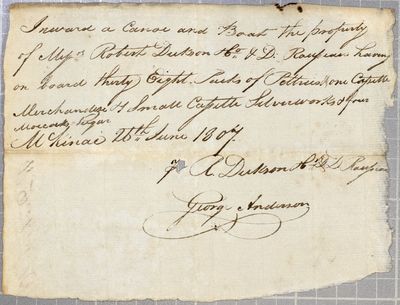 Inward a Canoe and Boat the property
of Mess.rs Robert Dickson & Co. & D. Rousseau having
on board thirty Eight Packs of Peltries, one Casette
Merchandize & 1 Small Casette Silverworks & four
Mococks Sugar
McKinac 26th June 1807.
R. Dickson & Co. & D. Rousseau
George Anderson